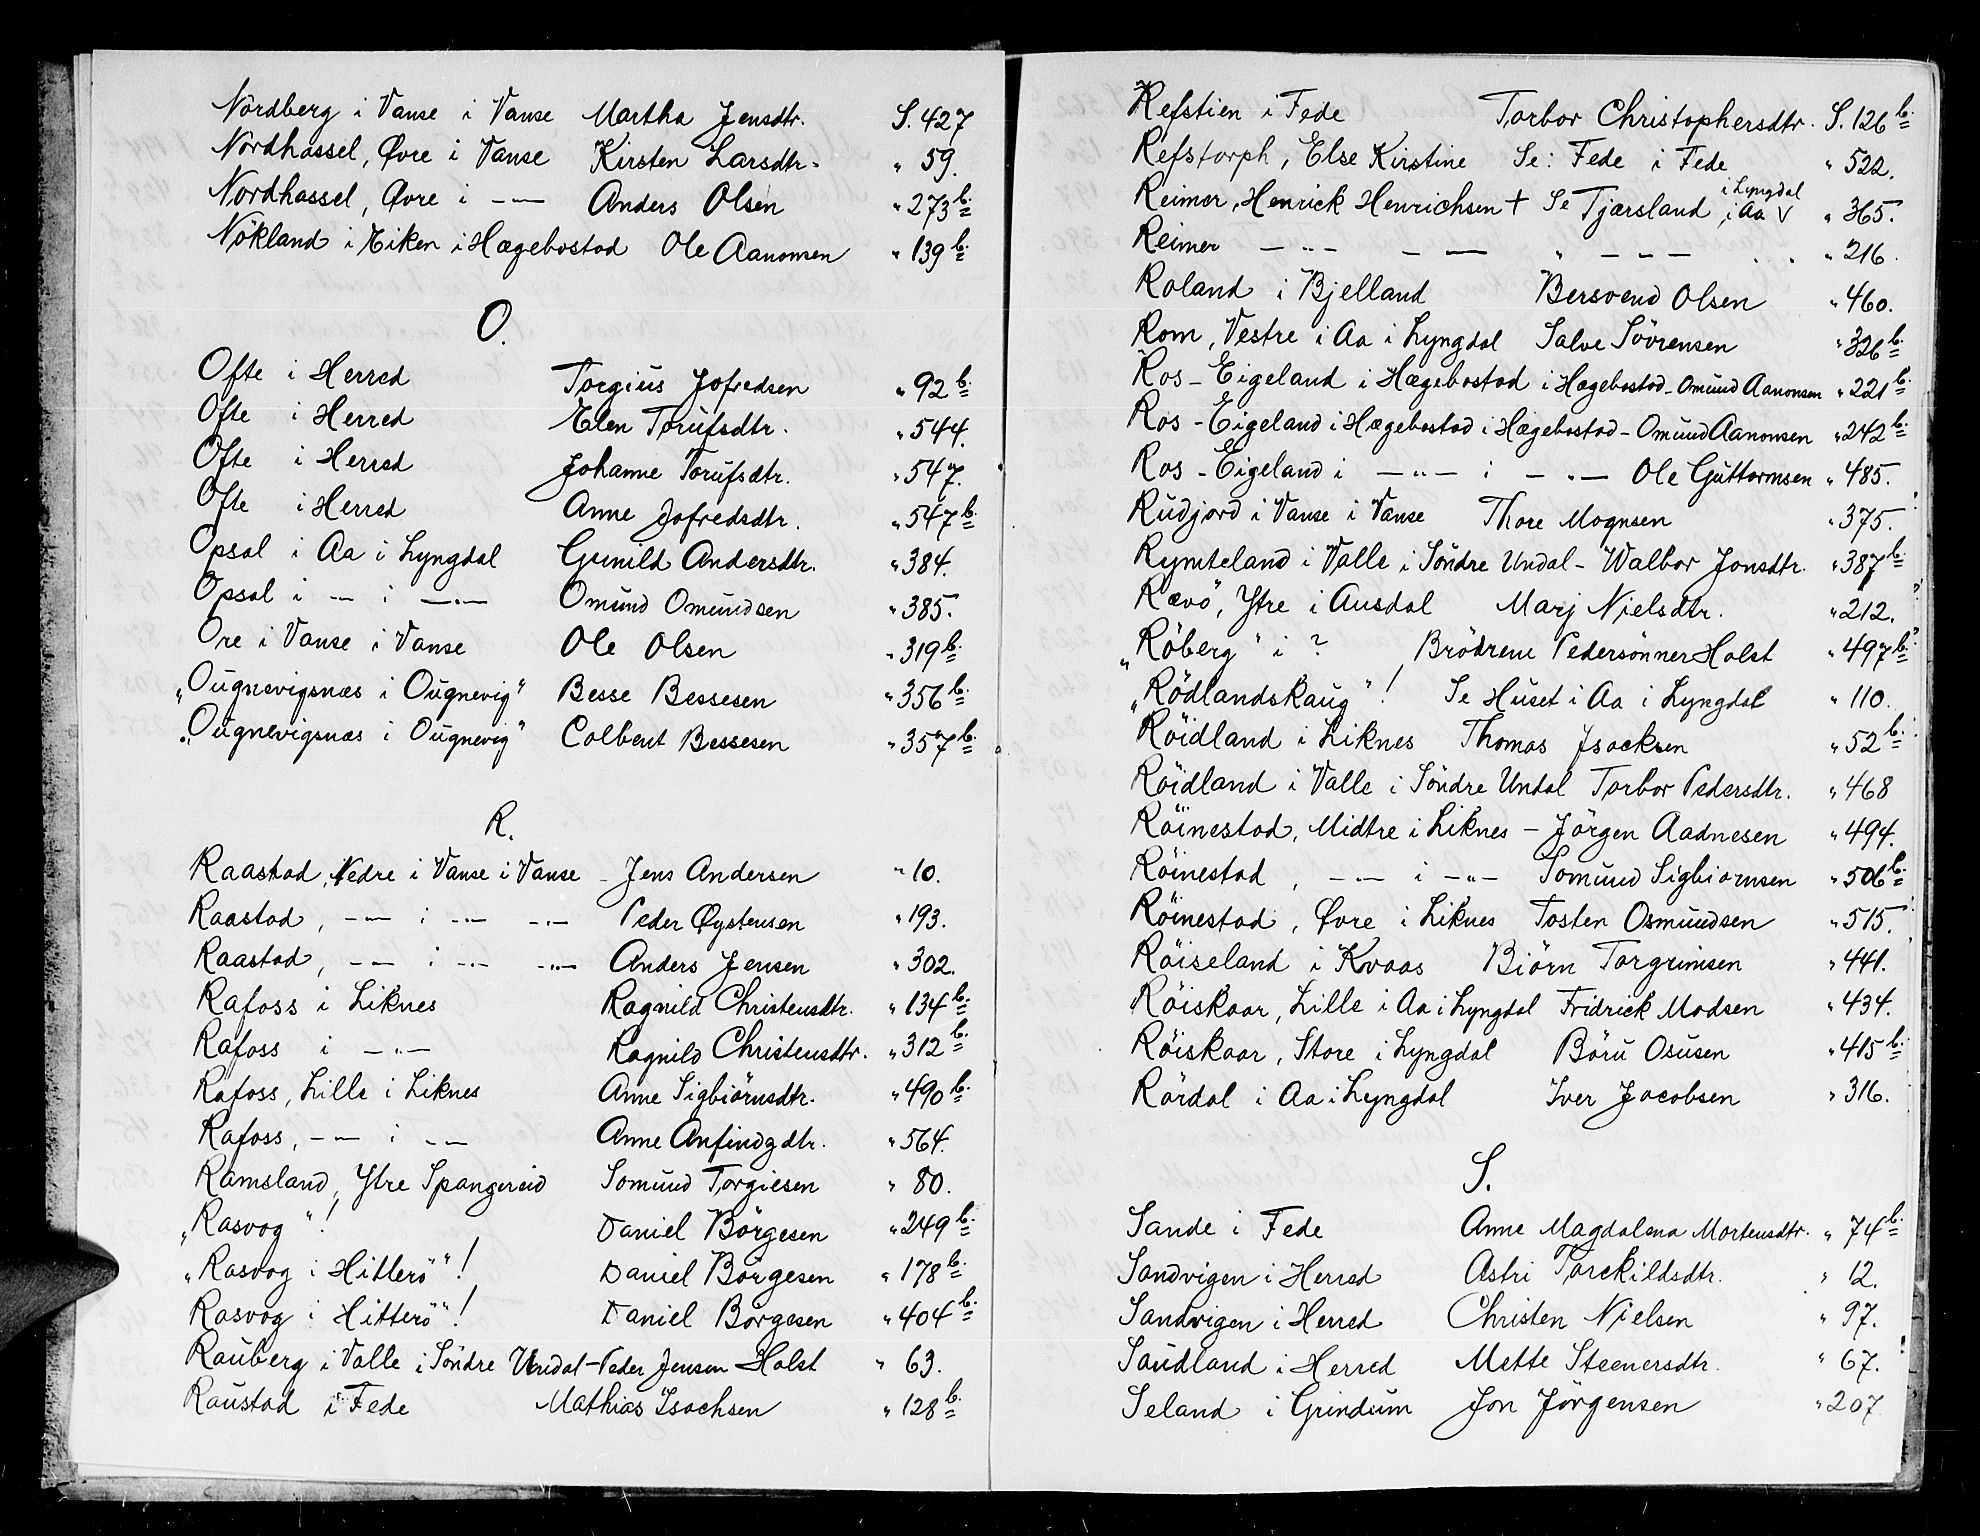 Nordberg i Vanse i Vanse Martha Jensdtr. S. 427
Nordhassel, Øvre i Vanse Kirsten Larsdtr. " 59.
Nordhassel, Øvre i -"- Anders Olsen " 273 b.
Nökland i Eiken i Hægebostad Ole Aanonsen " 139 b.
O.
Ofte i Herred Torgius Jofredsen " 92 b.
Ofte i Herred Elen Torufsdtr. " 544.
Ofte i Herred Johanne Torufsdtr. " 547.
Ofte i Herred Anne Jofredsdtr. " 547 b.
Opsal i Aa i Lyngdal Gunild Andersdtr. " 384.
Opsal i -"- i -"- Omund Omundsen " 385.
Ore i Vanse i Vanse Ole Olsen " 319 b.
"Ougnevigsnæs i Ougnevig" Besse Bessesen " 356 b.
"Ougnevigsnæs i Ougnevig" Colbent Bessesen " 357 b.
R.
Raastad, Nedre i Vanse i Vanse - Jens Andersen " 10.
Raastad, -"- i -"- -"- Peder Øystensen " 193.
Raastad, -"- i -"- -"- Anders Jensen " 302.
Rafoss i Liknes Ragnild Christensdtr. " 134 b.
Rafoss i -"- Ragnild Christensdtr. " 312 b.
Rafoss, Lille i Liknes Anne Sigbiörnsdtr. " 490 b.
Rafoss, -"- i -"- Anne Anfindzdtr. " 564.
Ramsland, Ytre Spangereid Somund Torgiesen " 80.
"Rasvog"! Daniel Börgesen " 249 b.
"Rasvog i Hitterö"! Daniel Börgesen " 178 b.
Rasvog i Hitterö"! Daniel Börgesen " 404 b.
Rauberg i Valle i Söndre Undal - Peder Jensen Holst " 63.
Raustad i Fede Mathias Isachsen " 128 b.
Refstien i Fede Torbor Christophersdtr. S. 126 b.
Refstorph, Else Kirstine Se: Fede i Fede " 522.
Reimer, Henrick Henrichsen + Se Tjærsland, i Aa i Lyngdal " 365.
Reimer -"- -"- " -"- " 216.
Roland i Bjelland Bersvend Olsen " 460.
Rom, Vestre i Aa i Lyngdal Salve Sövrensen " 326 b.
Ros-Eigeland i Hægebostad i Hægebostad - Omund Aanonsen " 221 b.
Ros-Eigeland i Hægebostad i Hægebostad - Omund Aanonsen " 242 b.
Ros-Eigeland i -"- i -"- Ole Guttormsen " 485.
Rudjord i Vanse i Vanse Thore Mognsen " 375.
Rymteland i Valle i Söndre Undal - Walbor Jonsdtr. " 387 b.
Rævö, Ytre i Ausdal Marj Nielsdtr. " 212.
"Röberg" i ? Brödrene Pedersönner Holst " 497 b.
"Rödlandskaug"! Se Huset i Aa i Lyngdal " 110.
Röidland i Liknes Thomas Jsacksen " 52 b.
Röidland i Valle i Söndre Undal Torbor Pedersdtr. " 468
Röinestad, Midtre i Liknes - Jörgen Aadnesen " 494.
Röinestad, -"- i -"- Somund Sigbiörnsen " 506 b.
Röinestad, Øvre i Liknes Tosten Osmundsen " 515.
Röiseland i Kvaas Biörn Torgrimsen " 441.
Röiskaar, Lille i Aa i Lyngdal Fridrick Madsen " 434.
Röiskaar, Store i Lyngdal Böru Osusen " 415 b.
Rördal i Aa i Lyngdal Iver Jacobsen " 316.
S.
Sande i Fede Anne Magdalena Mortensdtr. " 74 b.
Sandvigen i Herred Astri Torckildsdtr. " 12.
Sandvigen i Herred Christen Nielsen " 97.
Saudland i Herred Mette Steenersdtr. " 67.
Seland i Grindum Jon Jörgensen " 207